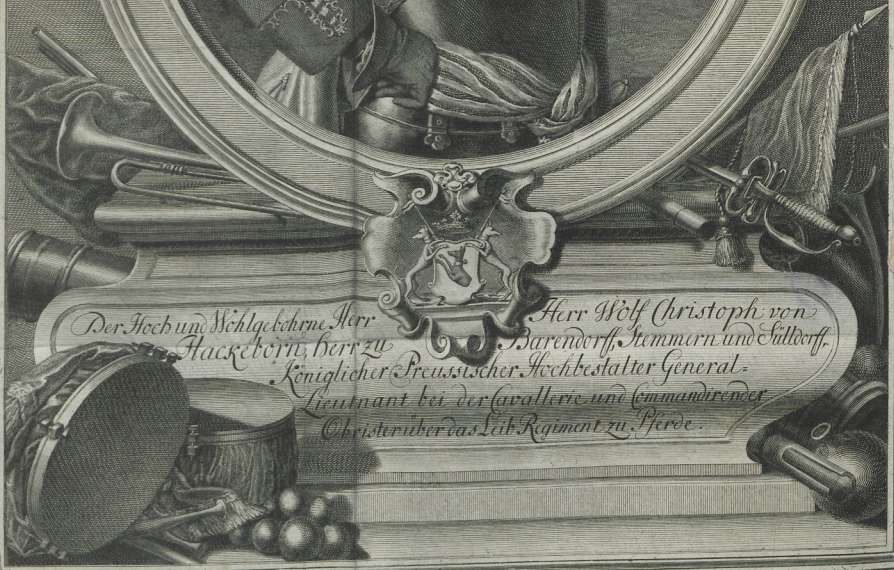 Der Hoch und Wohlgebohrne Herr Herr Wolf Christoph von
Hackeborn, Herr zu Barendorff, Stemmern und Sülldorff,
Königlicher Preussischer Hochbestalter General-
Lieutnant bei der Cavallerie und Commandirender
Obrister über das Leib Regiment zu Pferde.